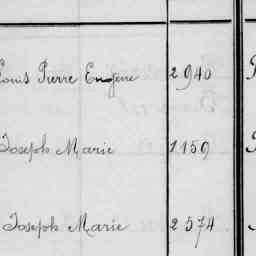 Louis Pierre Eugène 2940
Joseph Marie 1159
Joseph Marie 2574